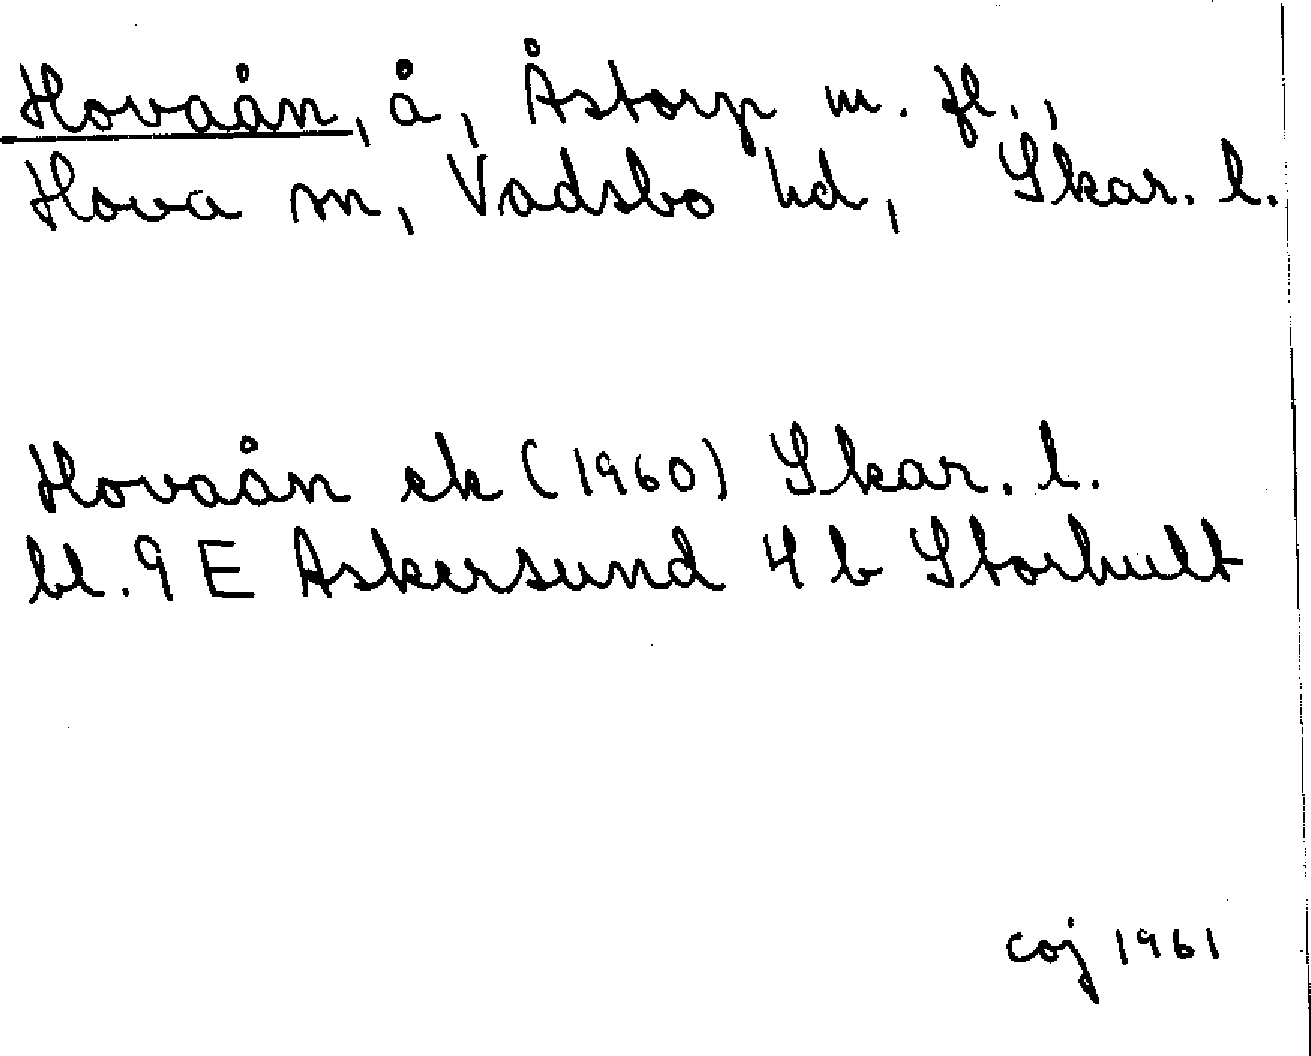 Hovaån, å, Åstorp m. fl.,
Hova sn, Vadsbo hd, Skar. l.
Hovaån ek (1960) Skar. l.
bl. 9 E Askersund 4 b Storhult
coj 1961